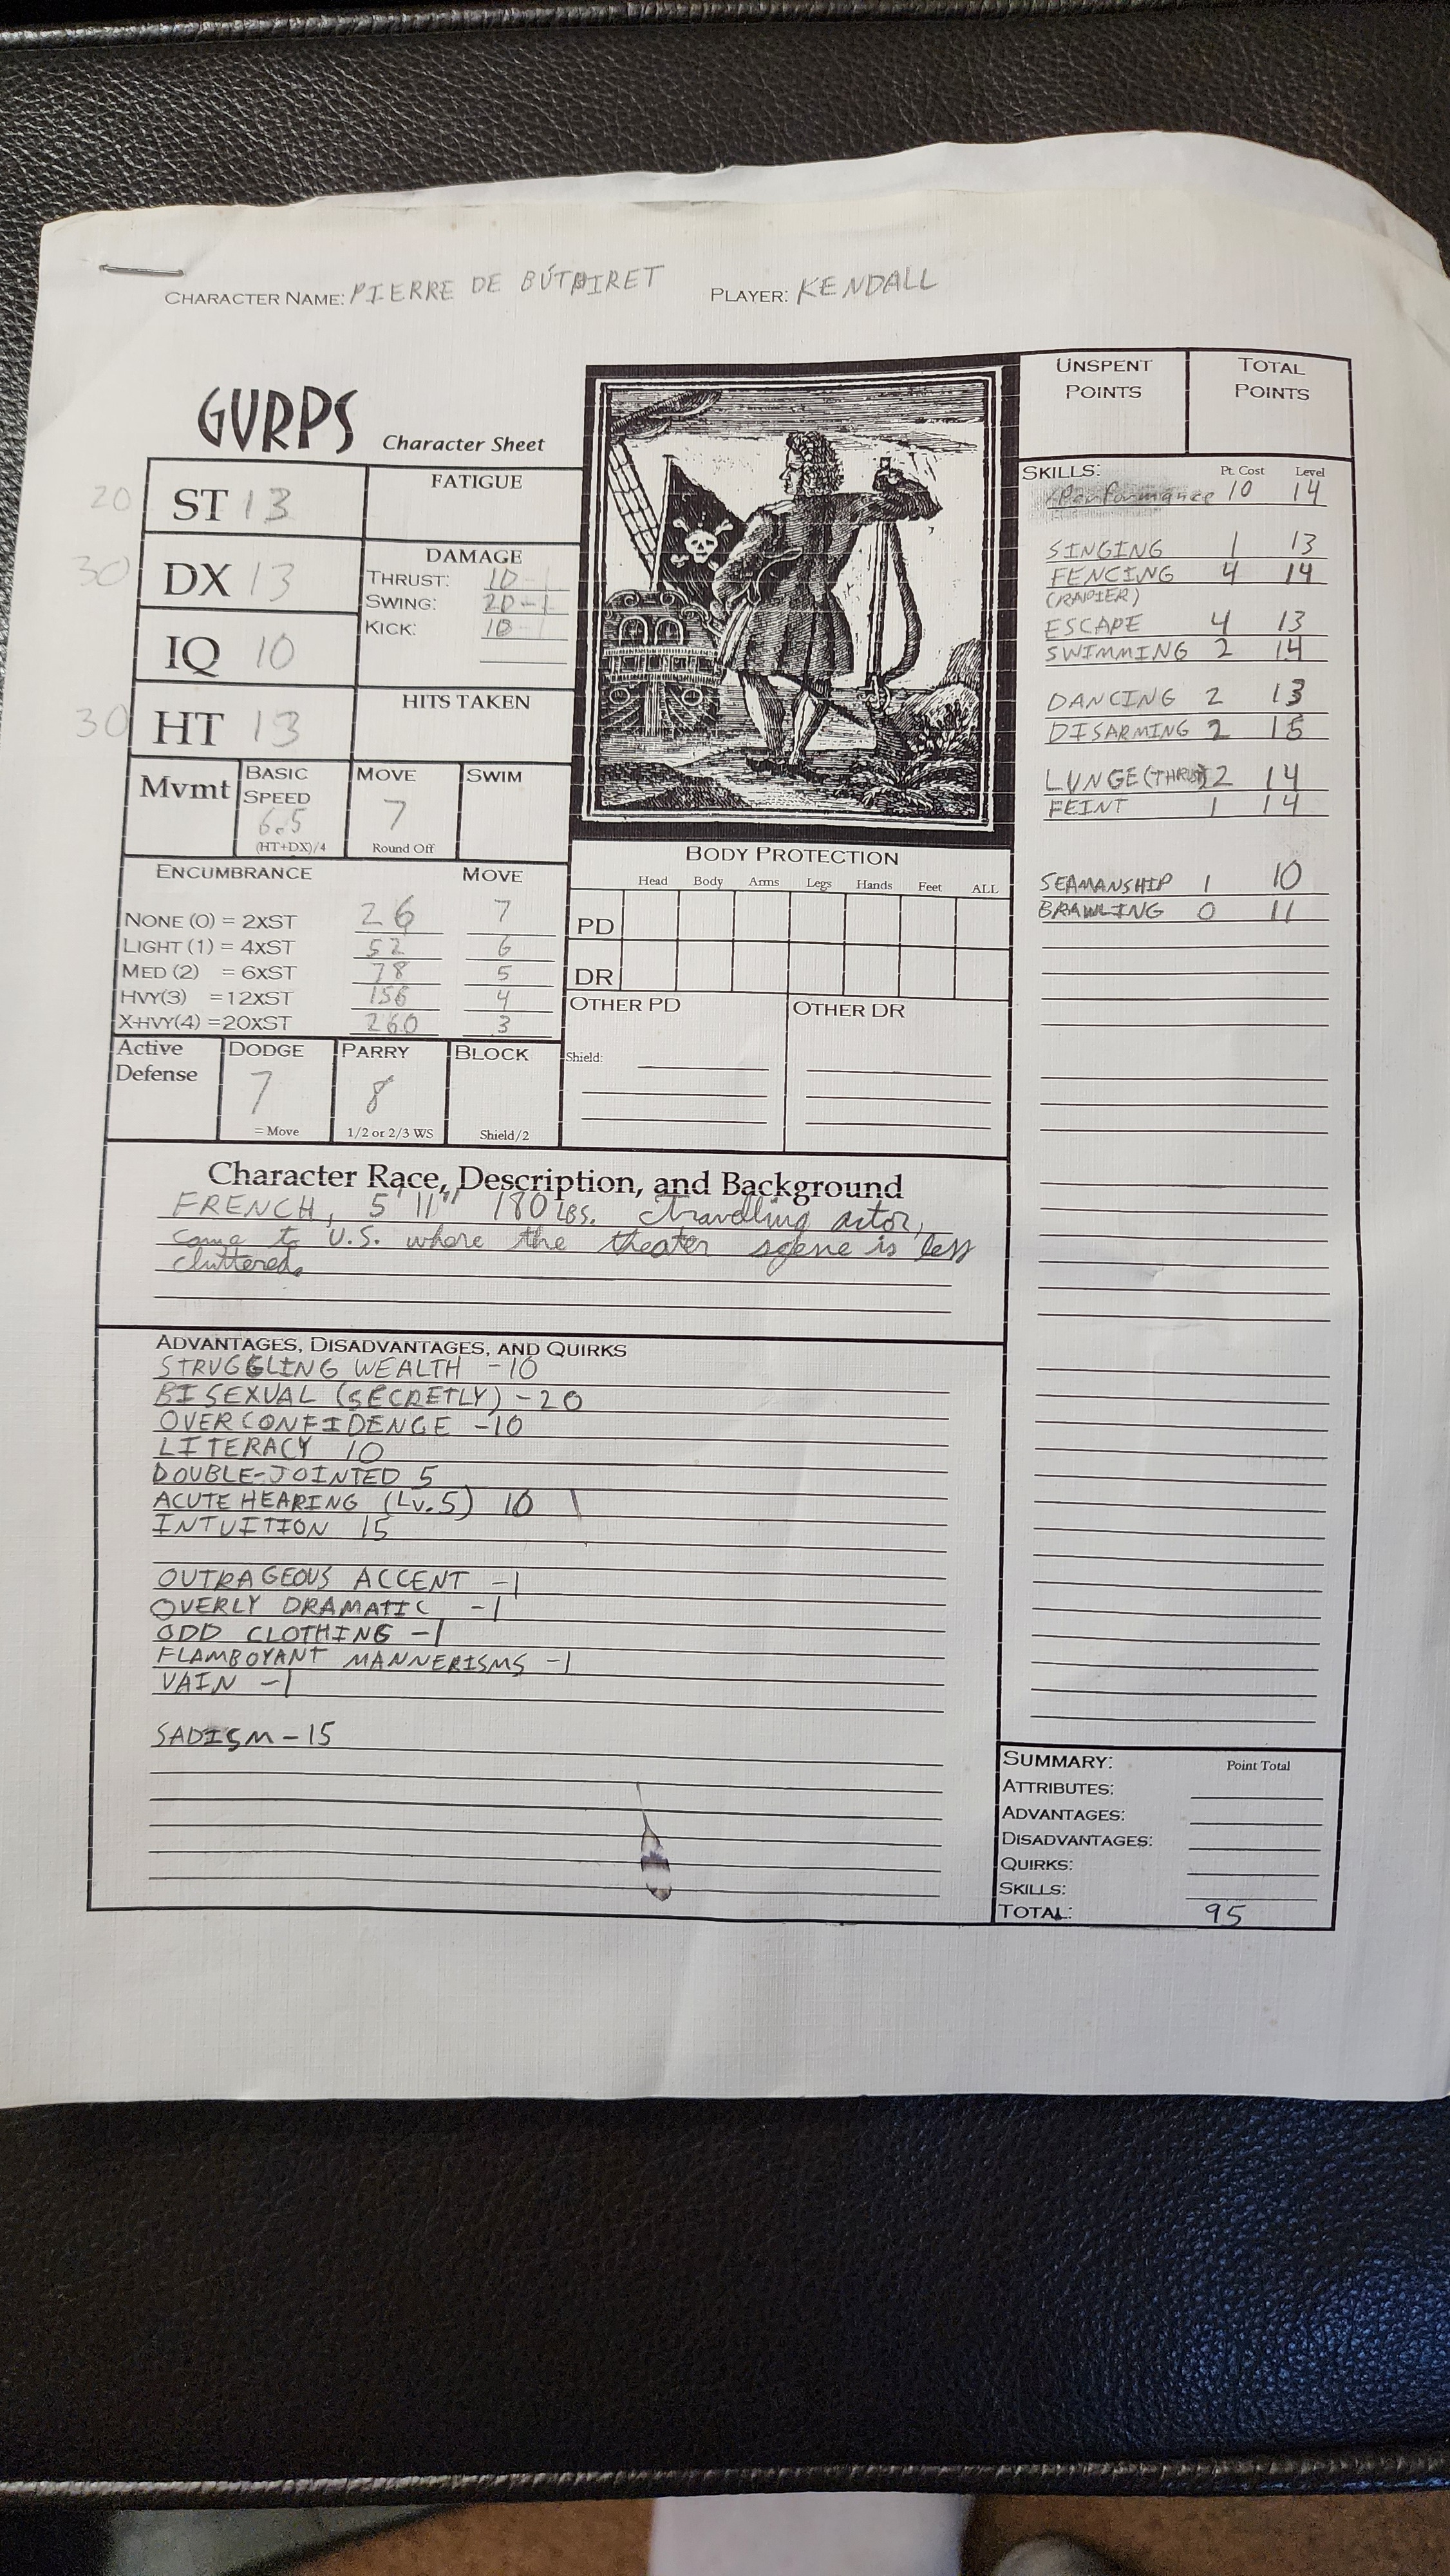 CHARACTER NAME: PIERRE DE BÚTAIRET PLAYER: KENDALL
GURPS Character Sheet
20 ST 13
30 DX 13
IQ 10
30 HT 13
FATIGUE
DAMAGE
THRUST: 1D-1
SWING: 2D-1
KICK: 1D-1
HITS TAKEN
Mvmt
BASIC SPEED
6.5
(HT+DX)/4
MOVE
7
Round Off
SWIM
ENCUMBRANCE MOVE
NONE (0) = 2XST 26 7
LIGHT (1) = 4XST 52 6
MED (2) = 6XST 78 5
HVY(3) =12XST 156 4
X-HVY(4) =20XST 260 3
Active Defense
DODGE
7
= Move
PARRY
8
1/2 or 2/3 WS
BLOCK
Shield/2
BODY PROTECTION
Head Body Arms Legs Hands Feet ALL
PD
DR
OTHER PD
Shield:
OTHER DR
UNSPENT POINTS
TOTAL POINTS
SKILLS: Pt. Cost Level
Performance 10 14
SINGING 1 13
FENCING 4 14
(RAPIER)
ESCAPE 4 13
SWIMMING 2 14
DANCING 2 13
DISARMING 2 15
LUNGE (THRUST) 2 14
FEINT 1 14
SEAMANSHIP 1 10
BRAWLING 0 11
Character Race, Description, and Background
FRENCH, 5'11" 180 LBS. travelling actor,
came to U.S. where the theater scene is less
cluttered.
ADVANTAGES, DISADVANTAGES, AND QUIRKS
STRUGGLING WEALTH -10
BISEXUAL (SECRETLY) -20
OVERCONFIDENCE -10
LITERACY 10
DOUBLE-JOINTED 5
ACUTE HEARING (LV.5) 10
INTUITION 15
OUTRAGEOUS ACCENT -1
OVERLY DRAMATIC -1
ODD CLOTHING -1
FLAMBOYANT MANNERISMS -1
VAIN -1
SADISM -15
SUMMARY: Point Total
ATTRIBUTES:
ADVANTAGES:
DISADVANTAGES:
QUIRKS:
SKILLS:
TOTAL: 95